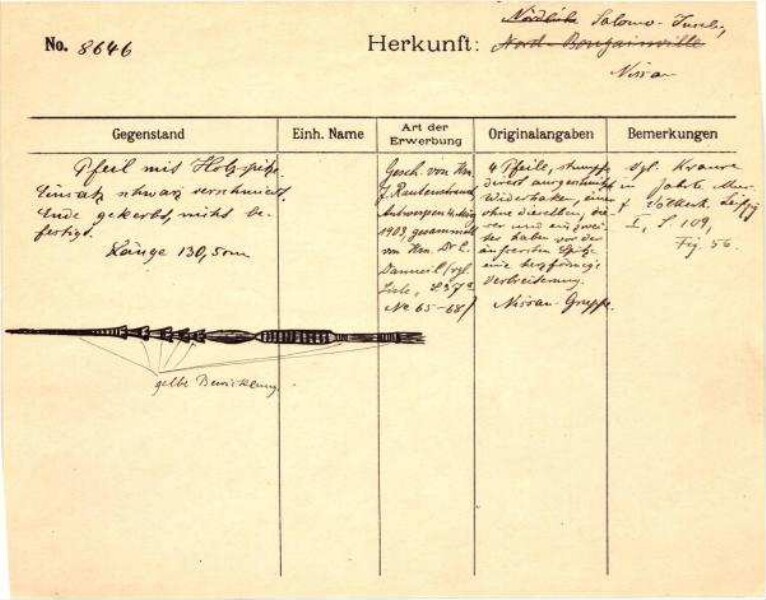 No. 8646
Herkunft:
Nördliche Salomo-Inseln,
Nord-Bougainville
Nissan
Gegenstand
Einh. Name
Art der
Erwerbung
Originalangaben
Bemerkungen
Pfeil mit Holzspitze.
Einsatz schwarz verschmiert.
Ende gekerbt, nicht be-
festigt.
Länge 130,5 cm
Gesch. von Hrn.
J. Rautenstrauch,
Antwerpen 4. Mai
1903, gesammelt
von Hrn. Dr C.
Danneil (vgl.
Liste,
No 65-68)
4 Pfeile, stumpfe
direct ausgeschnitzte
Widerhaken, einer
ohne dieselben, die-
ser und ein zwei-
ter haben vor der
äußersten Spitze
eine herzförmige
Verbreiterung.
Nissan-Gruppe.
vgl. Krause
in Jahrb. Mus.
f Völkerk. Leipzig
I, S. 109,
Fig. 56.
gelbe Bewicklung.